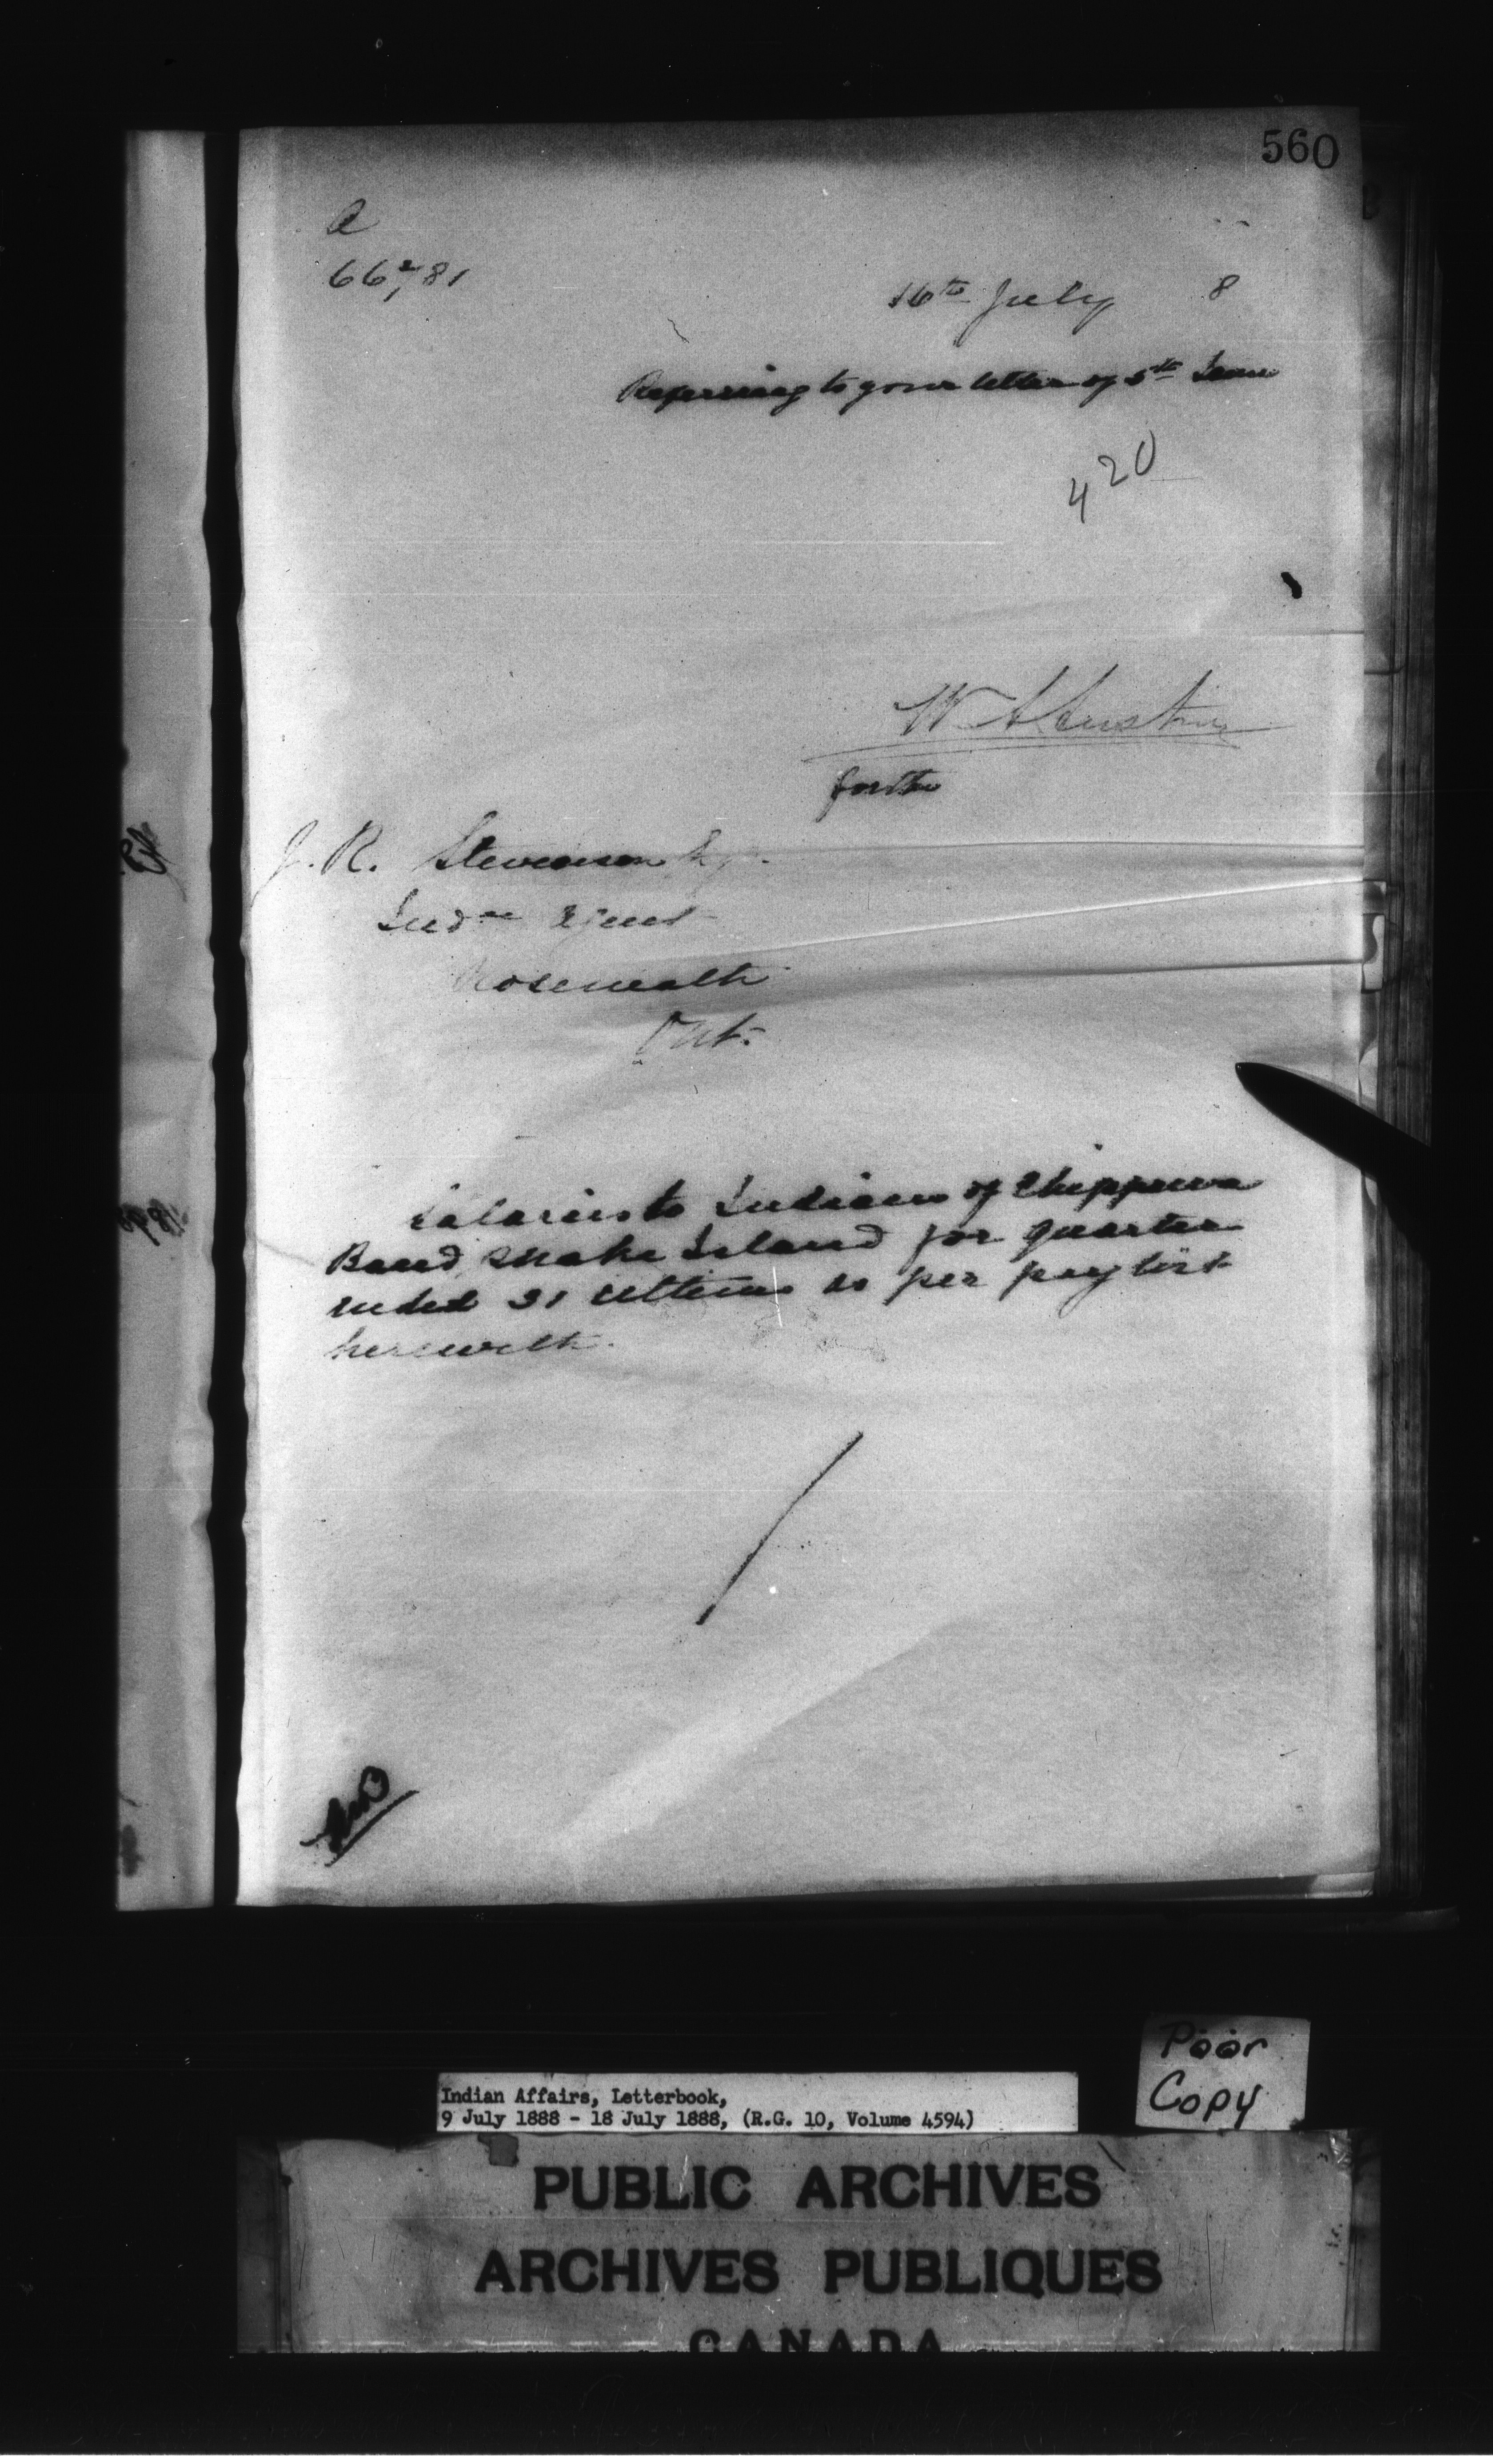 560
A
66,281
16th July 8
Referring to your letter of 5th
420
W A Austin
for the
J. R. Stevenson Esq.
Indn Agent
Roseneath
Ont.
Salaries to Indians of Chippewa
Band Snake Island for quarter
ended 31 Ultimo as per pay list
herewith.
Indian Affairs, Letterbook,
9 July 1888 - 18 July 1888, (R.G. 10, Volume 4594)
Poor
Copy
PUBLIC ARCHIVES
ARCHIVES PUBLIQUES
CANADA